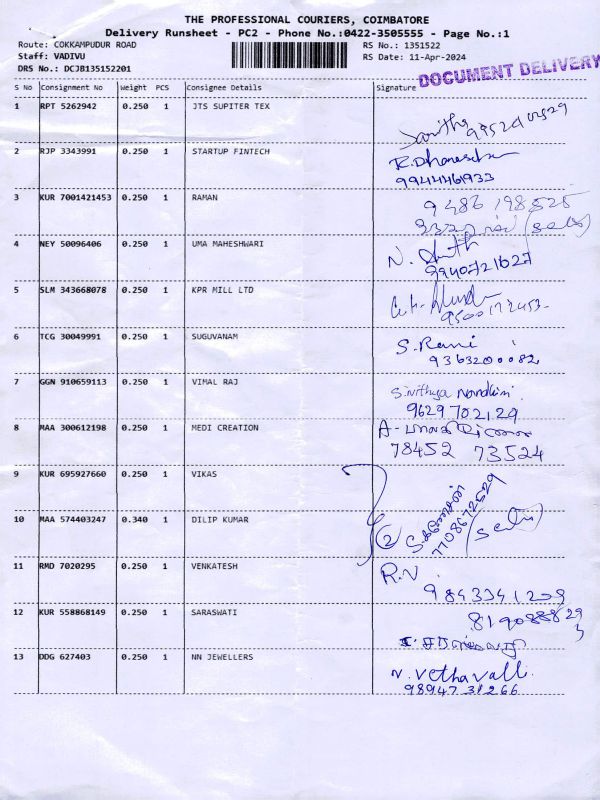 THE PROFESSIONAL COURIERS, COIMBATORE
Delivery Runsheet - PC2 - Phone No.:0422-3505555 - Page No.:1
Route: COKKAMPUDUR ROAD
RS No.: 1351522
Staff: VADIVU
RS Date: 11-Apr-2024
DRS No.: DCJB135152201
DOCUMENT DELIVERY
S No Consignment No Weight PCS Consignee Details Signature
1 RPT 5262942 0.250 1 JTS SUPITER TEX
2 RJP 3343991 0.250 1 STARTUP FINTECH
9944461933
3 KUR 7001421453 0.250 1 RAMAN
9486198525
4 NEY 50096406 0.250 1 UMA MAHESHWARI
N.
9940721627
5 SLM 343668078 0.250 1 KPR MILL LTD
6 TCG 30049991 0.250 1 SUGUVANAM S.Rani
9363200082
7 GGN 910659113 0.250 1 VIMAL RAJ S.nithya Nandhini
9629702129
8 MAA 300612198 0.250 1 MEDI CREATION A-
78452 73524
9 KUR 695927660 0.250 1 VIKAS
7708672529
10 MAA 574403247 0.340 1 DILIP KUMAR 2
11 RMD 7020295 0.250 1 VENKATESH R.V
9843341209
12 KUR 558868149 0.250 1 SARASWATI
13 DDG 627403 0.250 1 NN JEWELLERS N. Vethavalli
98947 31266